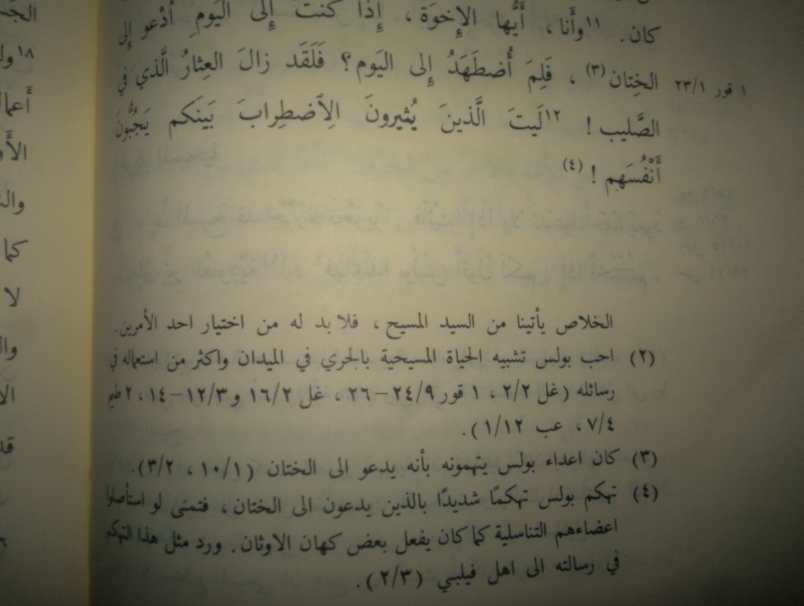 كان. ١١وأَنا، أَيُّها الإِخوَة، إِذا كُنتُ إِلى اليَومِ أَدْعو إِلى
الخِتان(٣)، فَلِمَ أُضطَهَدُ إِلى اليَوم؟ فَلَقَد زالَ العِثارُ الَّذي في
١ قور ٢٣/١
الصَّليب! ١٢لَيتَ الَّذينَ يُثيرونَ الِٱضطِرابَ بَينَكم يَجُبُّونَ
أَنْفُسَهم! (٤)
الخلاص يأتينا من السيد المسيح، فلا بد له من اختيار احد الأمرين.
(٢) احب بولس تشبيه الحياة المسيحية بالجري في الميدان واكثر من استعماله في
رسائله (غل ٢/٢، ١ قور ٢٤/٩-٢٦، غل ١٦/٢ و١٢/٣-١٤، ٢ طيم
٧/٤، عب ١/١٢).
(٣) كان اعداء بولس يتهمونه بأنه يدعو الى الختان (١٠/١، ٣/٢).
(٤) تهكم بولس تهكمًا شديدًا بالذين يدعون الى الختان، فتمنى لو استأصلوا
اعضاءهم التناسلية كما كان يفعل بعض كهان الاوثان. ورد مثل هذا التهكم
في رسالته الى اهل فيلبي (٢/٣).
١٨
أعما
كما
لا